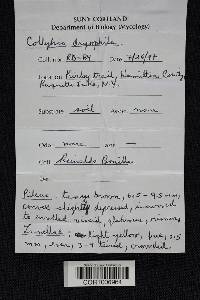 SUNY CORTLAND
Department of Biology (Mycology)
Collybia dryophila
Coll. no. RB-84 Date 7/26/97
Location trail, Hamilton County,
Lake, N.Y.
Substrate soil none
Odor none —
Coll. Reinaldo Bonilla
Pileus: tawny brown, 6.5-9.5 mm,
convex slightly depressed, incurved
to involled viscid, glabrous,
Lamellae: light yellow, free, 2.5
mm, even, 3-4 tiered, crowded.
CORT006964